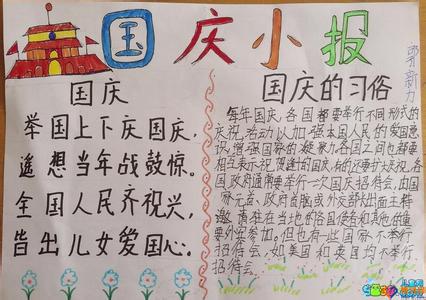 国庆小报
国庆
举国上下庆国庆,
遥想当年战鼓惊。
全国人民齐祝兴,
告出儿女爱国心。
国庆的习俗
每年国庆,各国都要举行不同形式的
庆祝活动以加强本国人民的爱国意
识,增强国家的凝聚力各国之间也都要
相互表示祝贺逢的国庆,有的还要扩大庆祝。各
国政府通常要举行一次国庆招待会,由国
家元首、政府首脑或外交部长出面主持
邀请驻在当地的各国使者和其他的重
要外宾参加。但也有一些国家不举行
招待会,如美国和英国均不举行
招待会。
新力